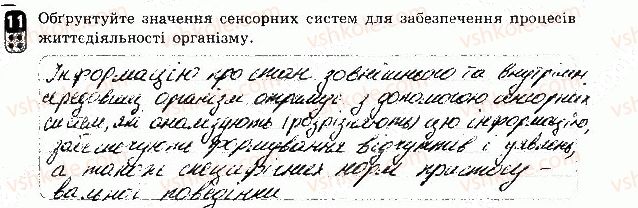 11 Обґрунтуйте значення сенсорних систем для забезпечення процесів
життєдіяльності організму.
Інформацію про стан зовнішнього та внутрішн
середовищ організм отримує з допомогою сенсорних
систем, які аналізують (розрізняють) цю інформацію,
забезпечують формування відчуттів і уявлень,
а також специфічних норм пристосу-
вальної поведінки